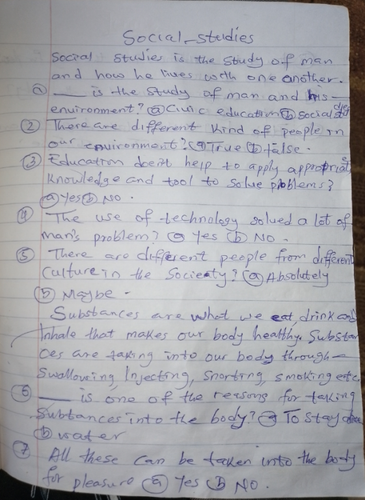 Social studies
Social studies is the study of man
and how he lives with one another.
① ___ is the study of man and his
environment? ⓐ Civic education ⓑ social
② There are different kind of people in
our environment? ⓐ True ⓑ false.
③ Education doesn't help to apply appropriate
knowledge and tool to solve problems?
ⓐ Yes ⓑ No.
④ The use of technology solved a lot of
man's problem? ⓐ Yes ⓑ No.
⑤ There are different people from different
culture in the Society? ⓐ Absolutely
ⓑ Maybe.
Substances are what we eat, drink and
Inhale that makes our body healthy. Substan
ces are taking into our body through
Swallowing, Injecting, Snorting, smoking etc.
⑥ ___ is one of the reasons for taking
Substances into the body? ⓐ To stay
ⓑ water
⑦ All these can be taken into the body
for pleasure ⓐ Yes ⓑ No.